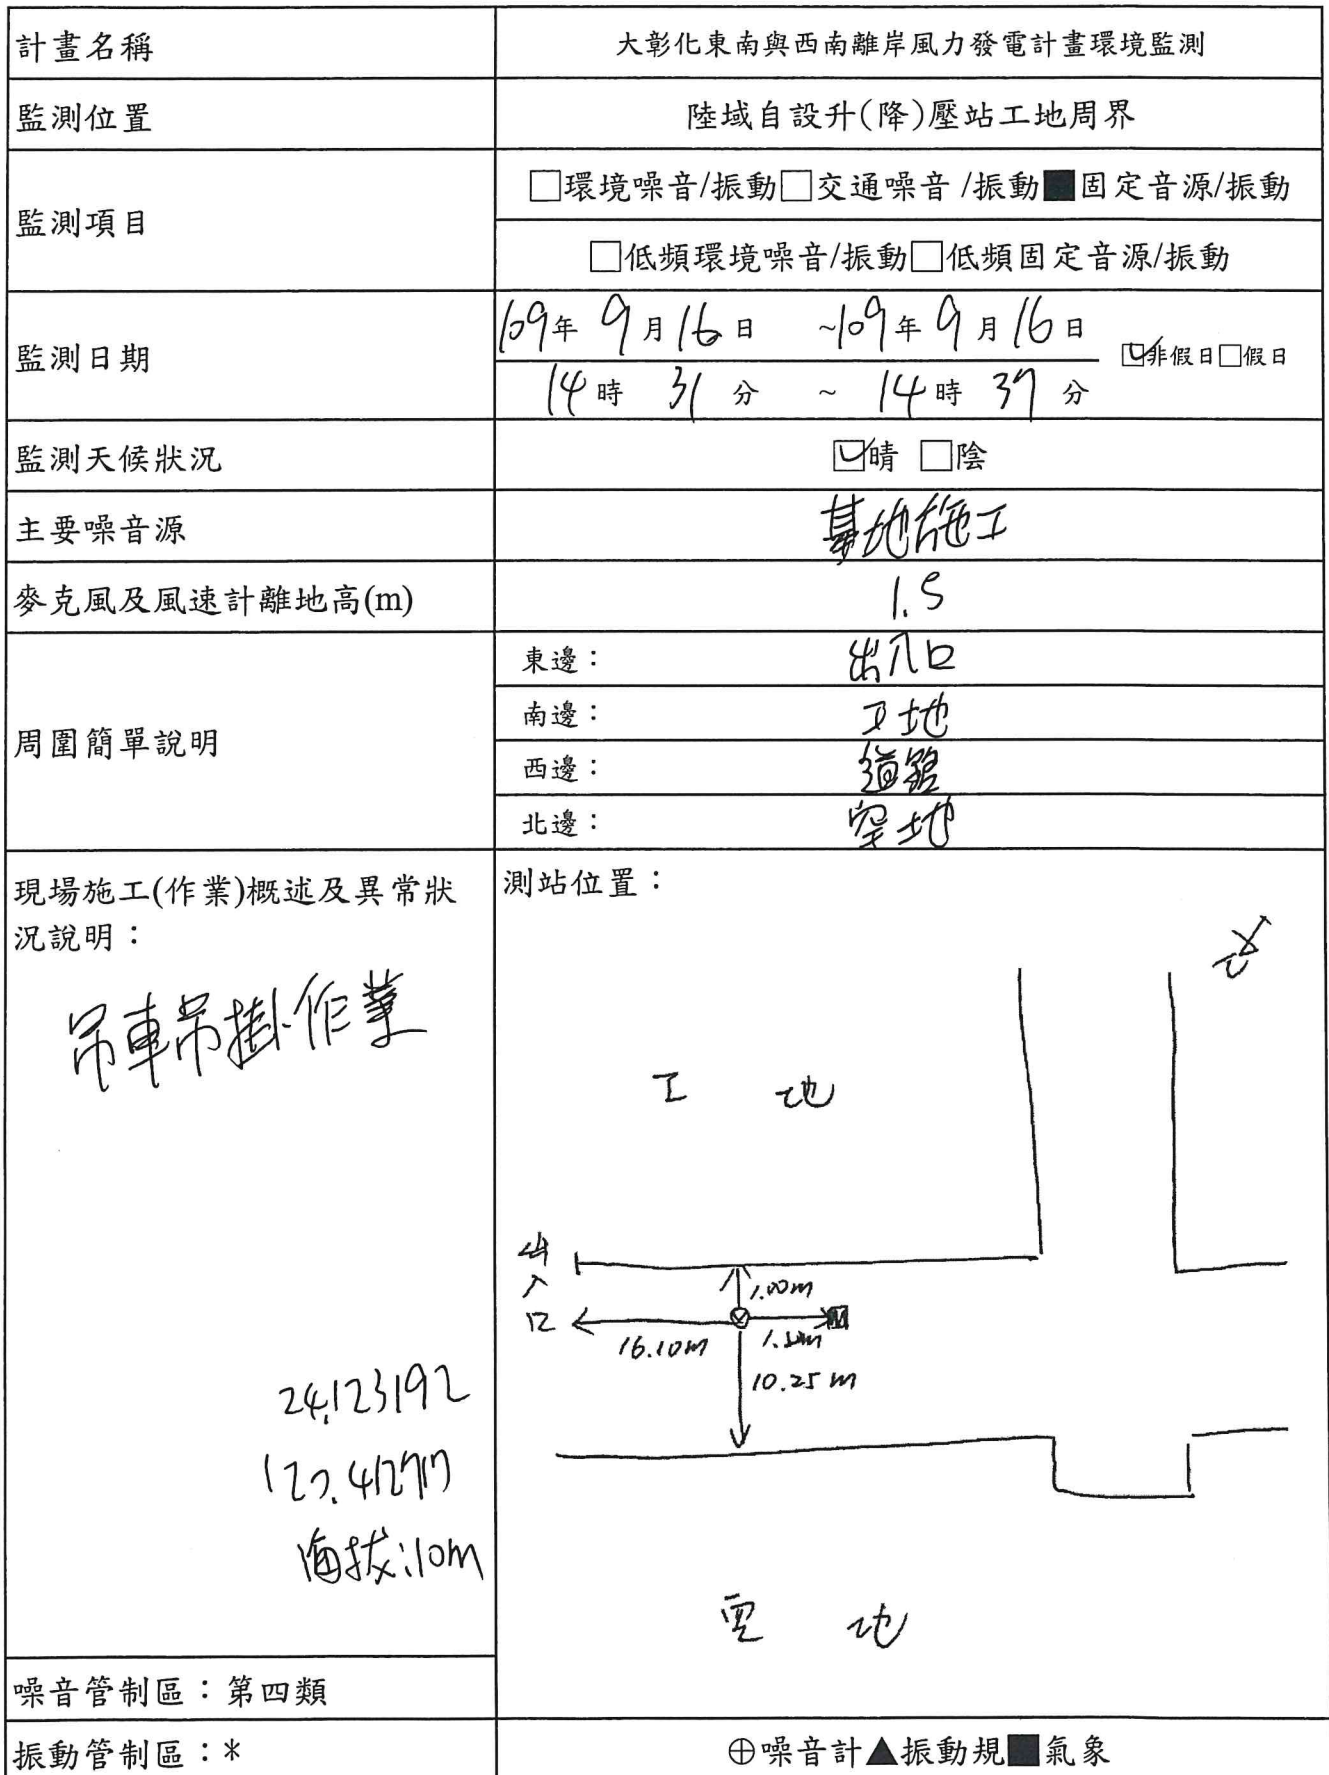 計畫名稱 大彰化東南與西南離岸風力發電計畫環境監測
監測位置 陸域自設升(降)壓站工地周界
監測項目 □環境噪音/振動□交通噪音 /振動■固定音源/振動
□低頻環境噪音/振動□低頻固定音源/振動
監測日期 109年 9月16日 ~109年 9月16日 ☑非假日□假日
14時 31分 ~ 14時 37分
監測天候狀況 ☑晴 □陰
主要噪音源 基地施工
麥克風及風速計離地高(m) 1.5
周圍簡單說明
東邊： 出入口
南邊： 工地
西邊： 道路
北邊： 空地
現場施工(作業)概述及異常狀
況說明：
吊車吊掛作業
24.123192
海拔:10m
測站位置：
北
工 地
出
入
口
1.00m
16.10m
10.25m
空 地
噪音管制區：第四類
振動管制區：*
⊕噪音計▲振動規■氣象